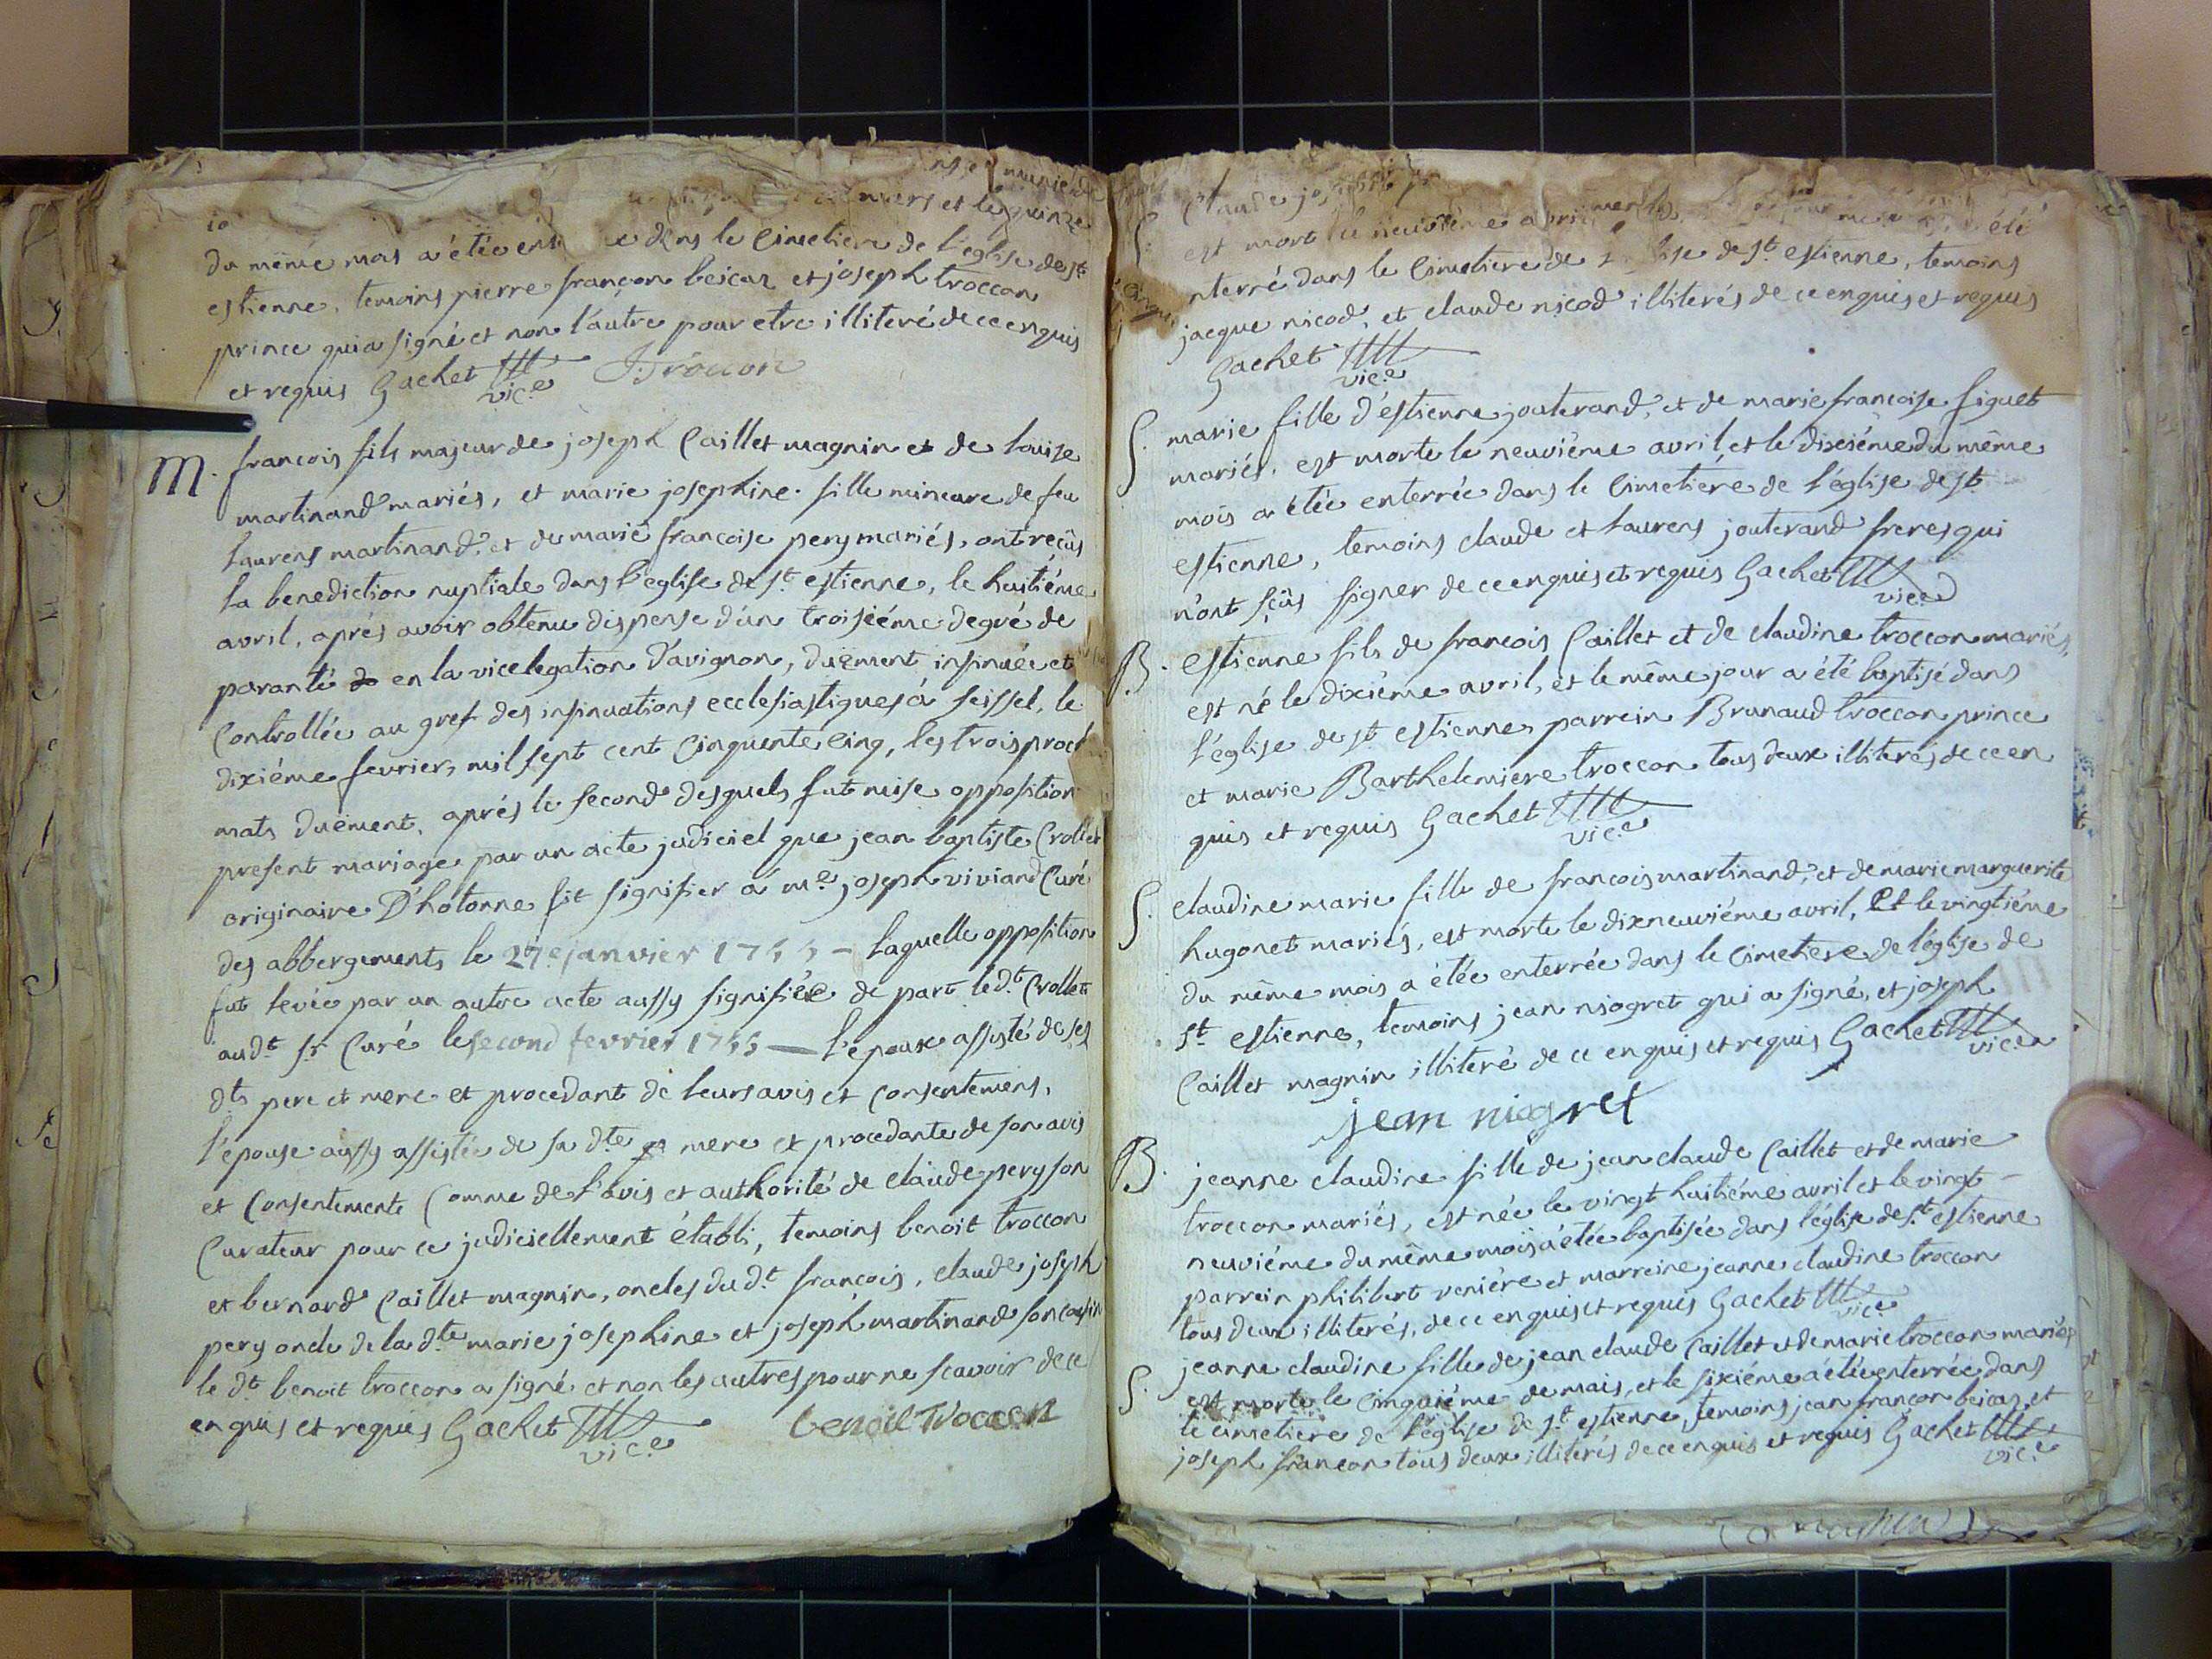 mars et le quinze
du même mois a étée dans le Cimetiere de l'eglise de st
estienne, temoins pierre françon beicaz et joseph troccon
prince qui a signé et non l'autre pour etre illiteré de ce enquis
et requis Gachet vice J: Troccon
M. francois fils majeur de joseph Caillet magnin et de louise
martinand mariés, et marie josephine fille mineure de feu
laurens martinand, et de marie francoise pery mariés, ont reçûs
la benediction nuptiale dans l'eglise de st estienne, le huitiéme
avril, aprés avoir obtenu dispense d'un troisiéme degré de
paranté en la vicelegation d'avignon, duëment insinuée et
Controllée au gref des insinuations ecclesiastiques à seissel, le
dixiéme fevrier, mil sept cent Cinquente cinq, les trois procl
mats duëment, aprés le second desquels fut mise opposition
present mariage par un acte judiciel que jean baptiste Crollet
originaire D'hotonne fit signifier a me joseph viviand Curé
des abbergements le 27e janvier 1755 - laquelle opposition
fut levée par un autre acte aussy signifiée de part led.t Crollet
aud.t sr Curé le second fevrier 1755 — l'epoux assisté de ses
dts pere et mere et procedant de leurs avis et Consentemens,
l'épouse aussy assistée de sa dte mere et procedante de son avis
et Consentement Comme de l'avis et authorité de claude pery son
Curateur pour ce judiciellement établi, temoins benoit troccon
et bernard Caillet magnin, oncles dud.t francois, claude joseph
pery oncle de la dte marie josephine et joseph martinand son cousin
le dt benoit troccon a signé et non les autres pour ne scavoir de ce
enquis et requis Gachet vice benoit troccon
S. Claude
est mort le neuviéme avril été
nterré dans le Cimetiere de de st estienne, temoins
jacque nicod, et claude nicod illiterés de ce enquis et requis
Gachet vice
S. marie fille d'estienne jouterand, et de marie francoise figuet
mariés, est morte le neuviéme avril, et le dixiéme du même
mois a étée enterrée dans le Cimetiére de l'église de st
estienne, temoins claude et laurens jouterand freres qui
n'ont sçûs signer de ce enquis et requis Gachet vice
B. estienne fils de francois Caillet et de claudine troccon mariés,
est né le dixiéme avril, et le même jour a été baptisé dans
l'église de st estienne, parrein Brunaud troccon prince
et marie Barthelemiere troccon tous deux illiterés de ce en
quis et requis Gachet vice
S. claudine marie fille de francois martinand, et de marie marguerite
hugonet mariés, est morte le dixneuviéme avril, Et le vingtiéme
du même mois a étée enterrée dans le Cimetiere de l'église de
st estienne, temoins jean niogret qui a signé, et joseph
Caillet magnin illiteré de ce enquis et requis Gachet vice
jean niogret
B. jeanne claudine fille de jean claude Caillet et de marie
troccon mariés, est née le vingt huitiéme avril et le vingt -
neuviéme du même mois a étée baptisée dans l'église de st estienne
parrein philibert veniére et marreine jeanne claudine troccon
tous deux illiterés, de ce enquis et requis Gachet vice
S. jeanne claudine fille de jean claude Caillet et de marie troccon mariés
est morte le Cinquiéme de mais, et le sixiéme a étée enterrée dans
le cimetiere de l'église de st estienne, temoins jean françon beicaz, et
joseph françon tous deux illiterés de ce enquis et requis Gachet vice